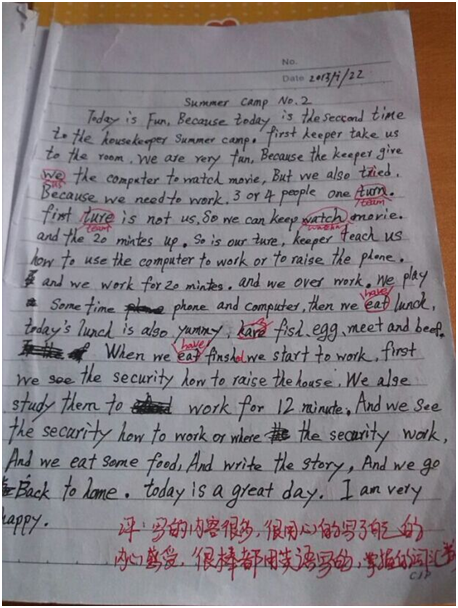 No.
Date 2013/1/22
Summer Camp No.2
Today is Fun, Because today is the seccond time
to the housekeeper Summer camp. first keeper take us
to the room. We are very fun, Because the keeper give
we the computer to watch movie, But we also tried.
us
Because we need to work. 3 or 4 people one turn.
team
first ture is not us, So we can keep watch movie.
team
and the 20 mintes up. So is our ture, keeper teach us
how to use the computer to work or to raise the phone.
and we work for 20 mintes. and we over work. We play
Some time phone and computer, then we eat lunch,
have
today's lunch is also yummy, fish, egg, meet and beef.
When we eat finshed we start to work, first
have
we see the security how to raise the house. We alse
study them to work for 12 minute. And we see
the security how to work or where the security work,
And we eat some food, And write the story, And we go
Back to home. today is a great day. I am very
happy.
评: 写的内容很多, 很用心的写了自己的
内心感受, 很棒都用英语写的, 掌握的词汇